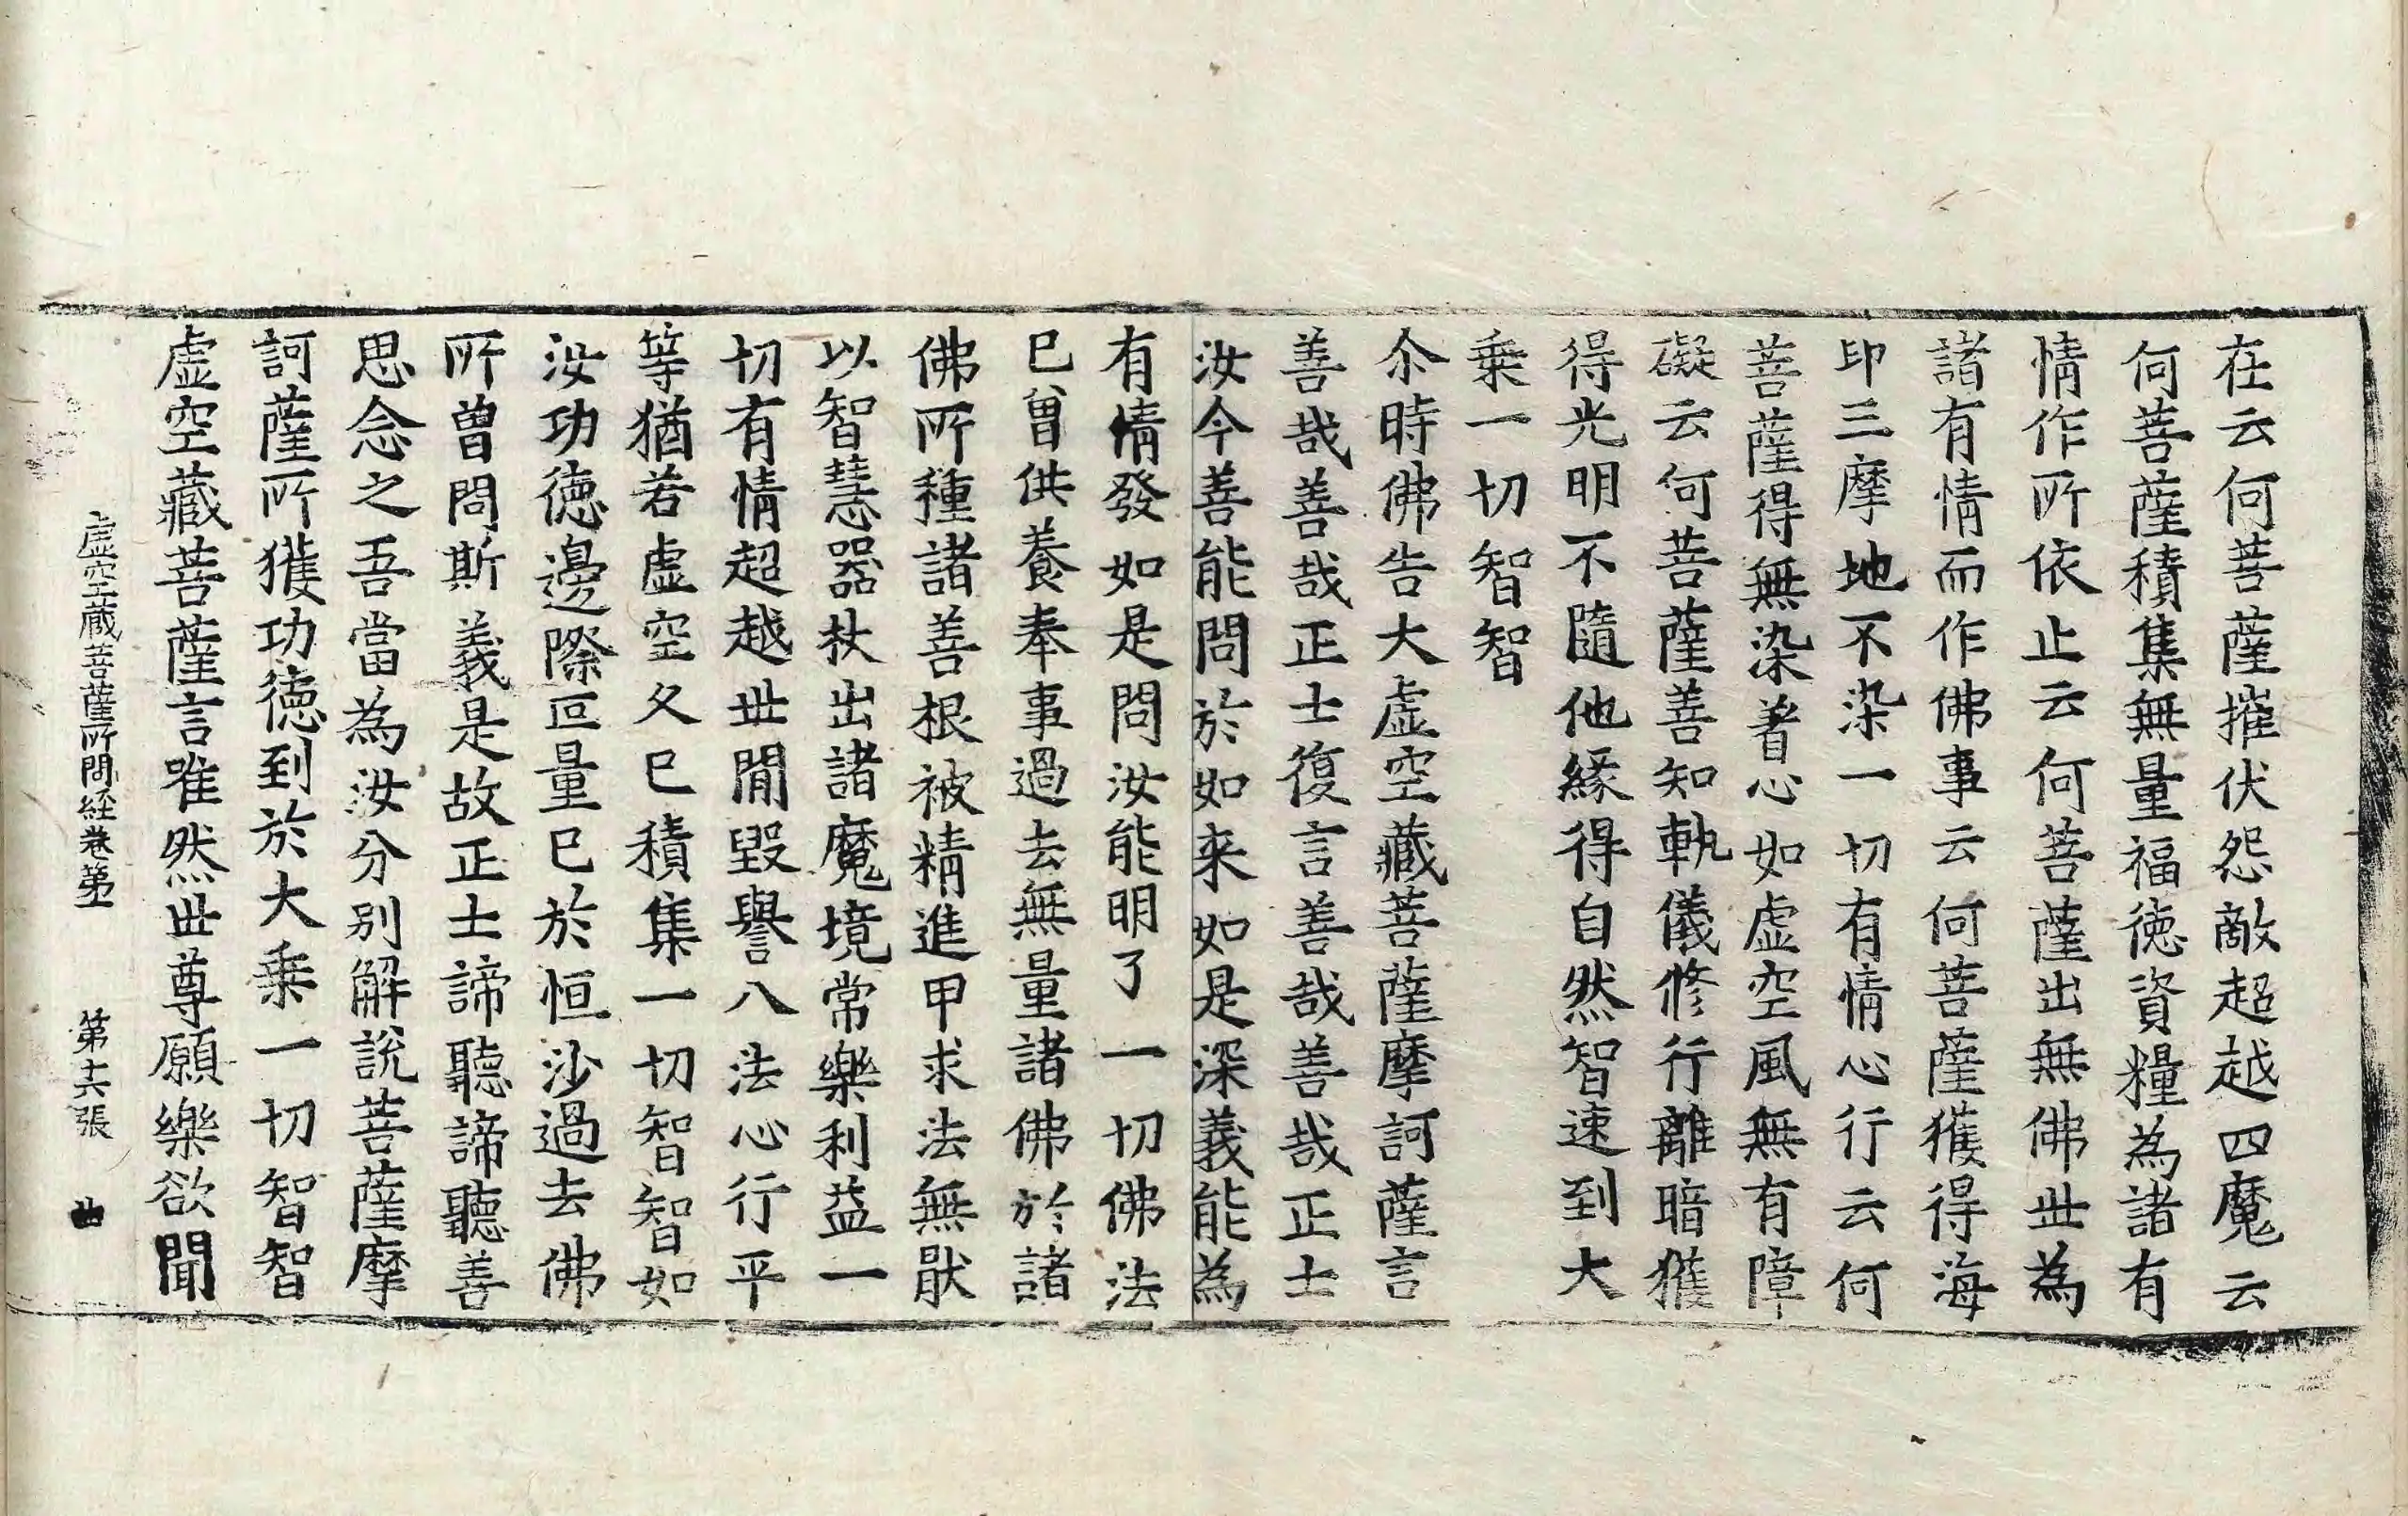 在云何菩薩摧伏怨敵超越四魔云
何菩薩積集無量福徳資糧為諸有
情作所依止云何菩薩出無佛丗為
諸有情而作佛事云何菩薩獲得海
印三摩地不染一切有情心行云何
菩薩得無染著心如虛空風無有障
礙云何菩薩善知軌儀修行離暗獲
得光明不隨他緣得自然智速到大
乗一切智智
尒時佛告大虛空藏菩薩摩訶薩言
善哉善哉正士復言善哉善哉正士
汝今善能問於如来如是深義能為
有情發如是問汝能明了一切佛法
巳曾供養奉事過去無量諸佛於諸
佛所種諸善根被精進甲求法無猒
以智慧器杖出諸魔境常樂利益一
切有情超越丗閒毀譽八法心行平
等猶若虛空久巳積集一切智智如
汝功徳邊際叵量巳於恒沙過去佛
所曽問斯義是故正士諦聽諦聽善
思念之吾當為汝分別解說菩薩摩
訶薩所獲功徳到於大乗一切智智
虛空藏菩薩言唯然丗尊願樂欲聞
虛空藏菩薩所問経卷苐
第十六張